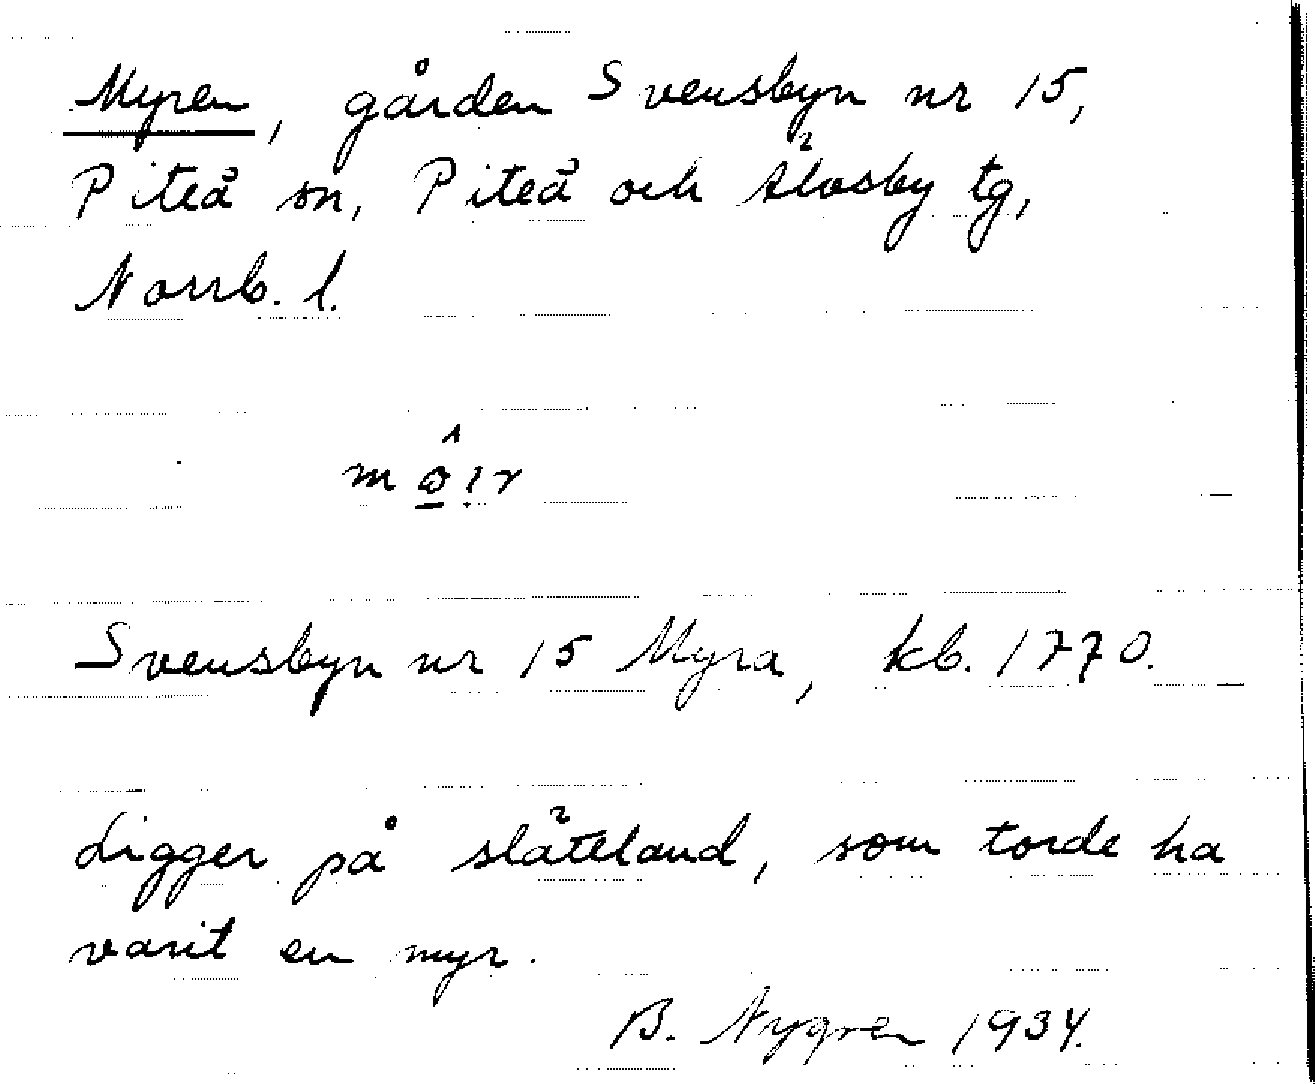 Myren, gården Svensbyn nr 15,
Piteå sn, Piteå och Älvsby tg,
Norrb. l.
Svensbyn nr 15 Myra, kb. 1770.
Ligger på slåtteland, som torde ha
varit en myr.
B. Nygren 1934.